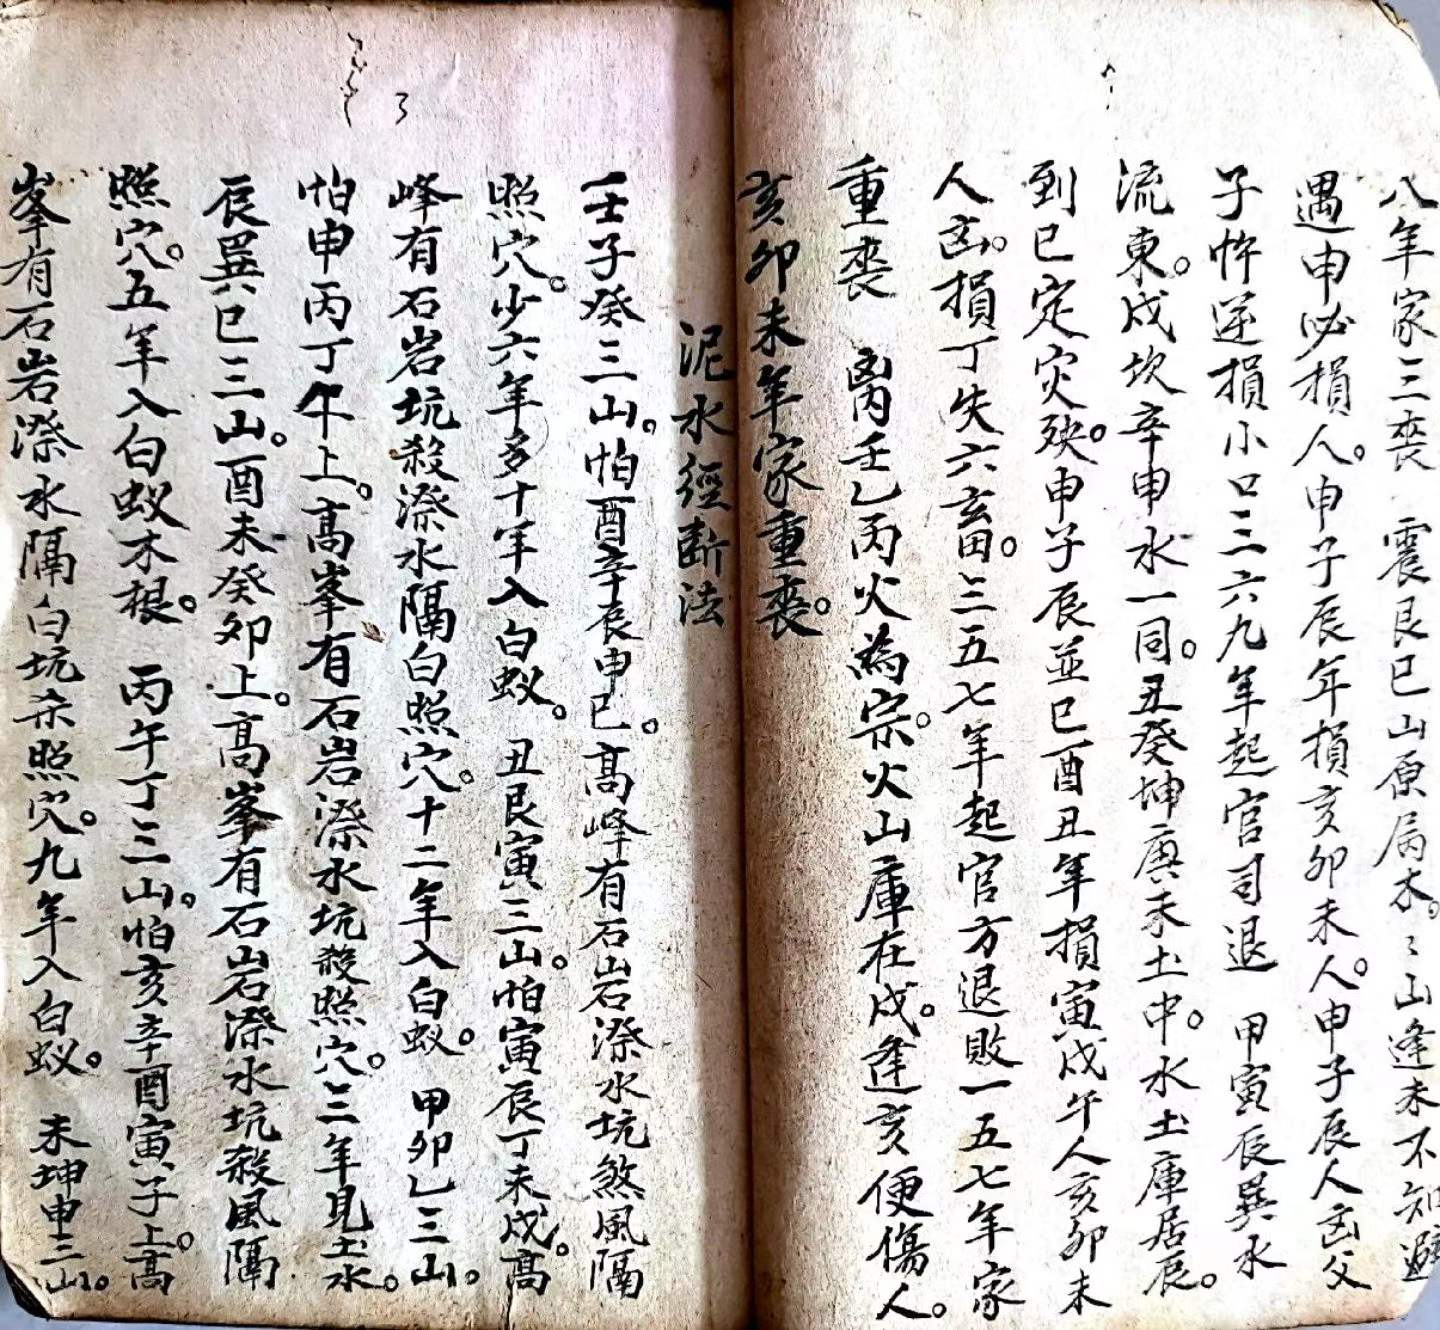 八年家三喪 震艮巳山原局木。〻山逢未不知避
遇申必損人。申子辰年損亥卯未人。申子辰人凶父
子忤逆損小口三六九年起官司退 甲寅辰巽水
流東。戌坎辛申水一同。丑癸坤庚未土中。水土庫居辰。
到巳定灾殃。申子辰並巳酉丑年損寅戌午人亥卯未
人凶。損丁失六畜。三五七年起官方退敗一五七年家
重喪 离壬乙丙火為宗。火山庫在戌。逢亥便傷人。
亥卯未年家重喪。
泥水經断法
壬子癸三山。怕酉辛辰申巳。高峰有石岩漈水坑煞風隔
照穴。少六年多十年入白蚁。 丑艮寅三山。怕寅辰丁未戌。高
峰有石岩坑殺漈水隔白照穴。十二年入白蚁。 甲卯乙三山。
怕申丙丁午上。高峯有石岩漈水坑殺照穴。三年見土水。
辰巽巳三山。酉未癸卯上。高峯有石岩漈水坑殺風隔
照穴。五年入白蚁木根。 丙午丁三山。怕亥辛酉寅子上。高
峯有石岩漈水隔白坑杀照穴。九年入白蚁。 未坤申三山。